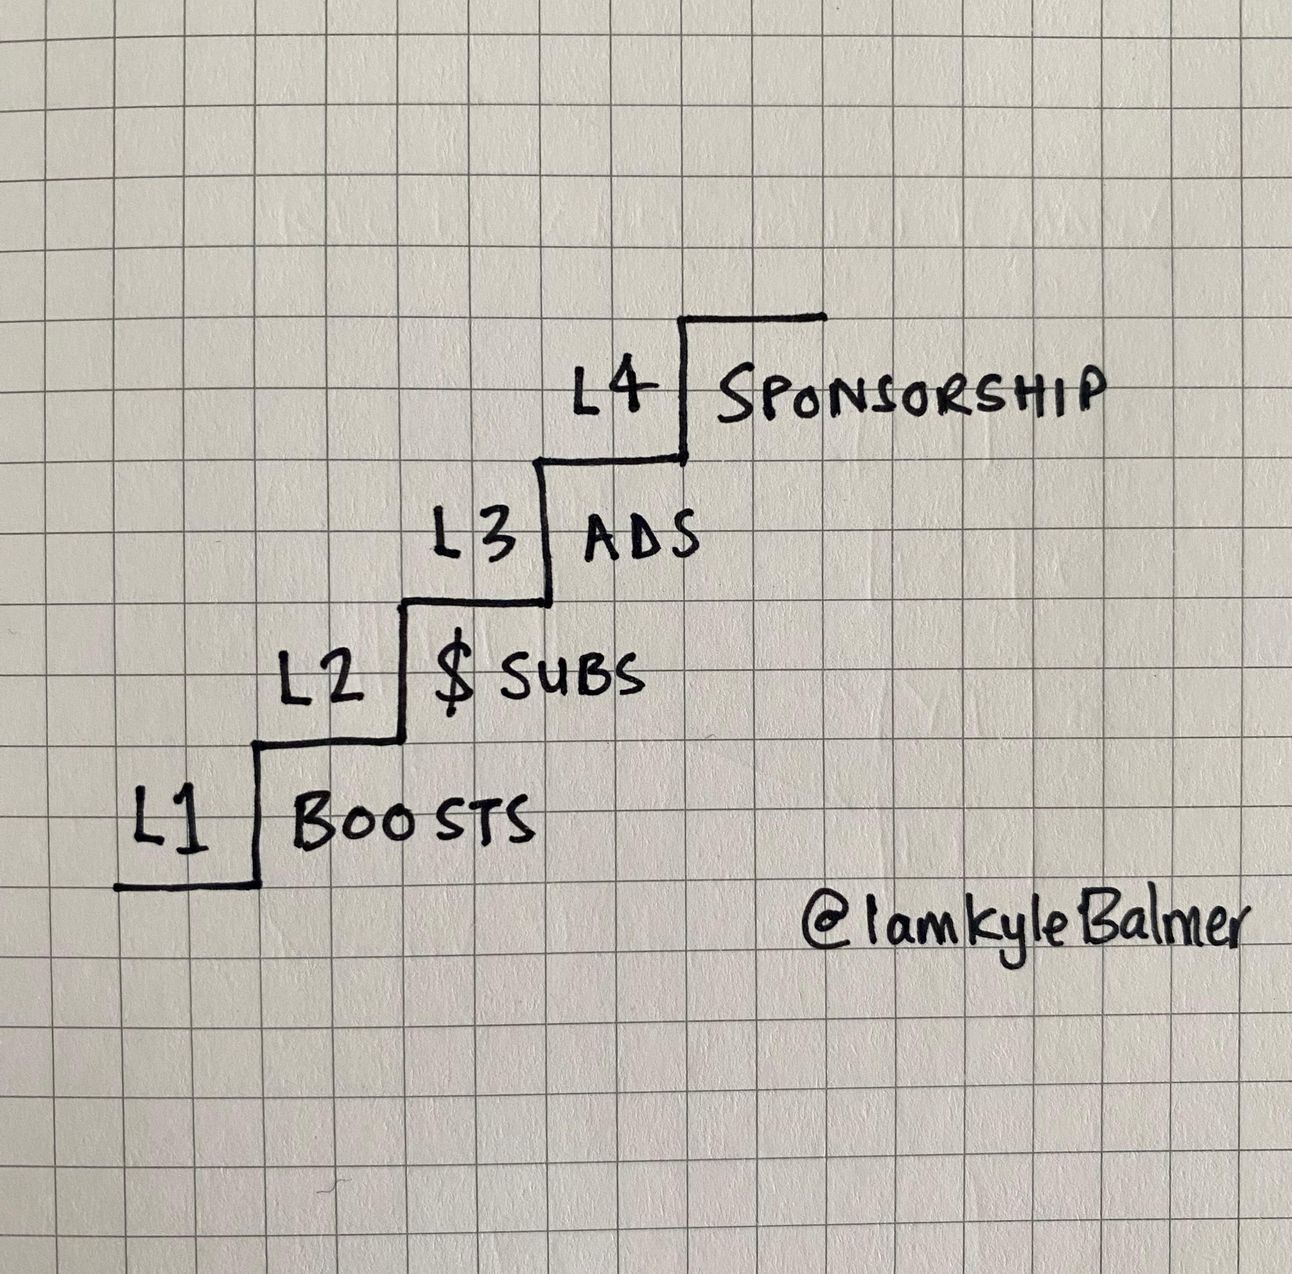 L4 SPONSORSHIP
L3 ADS
L2 $ SUBS
L1 BOOSTS
@IamkyleBalmer